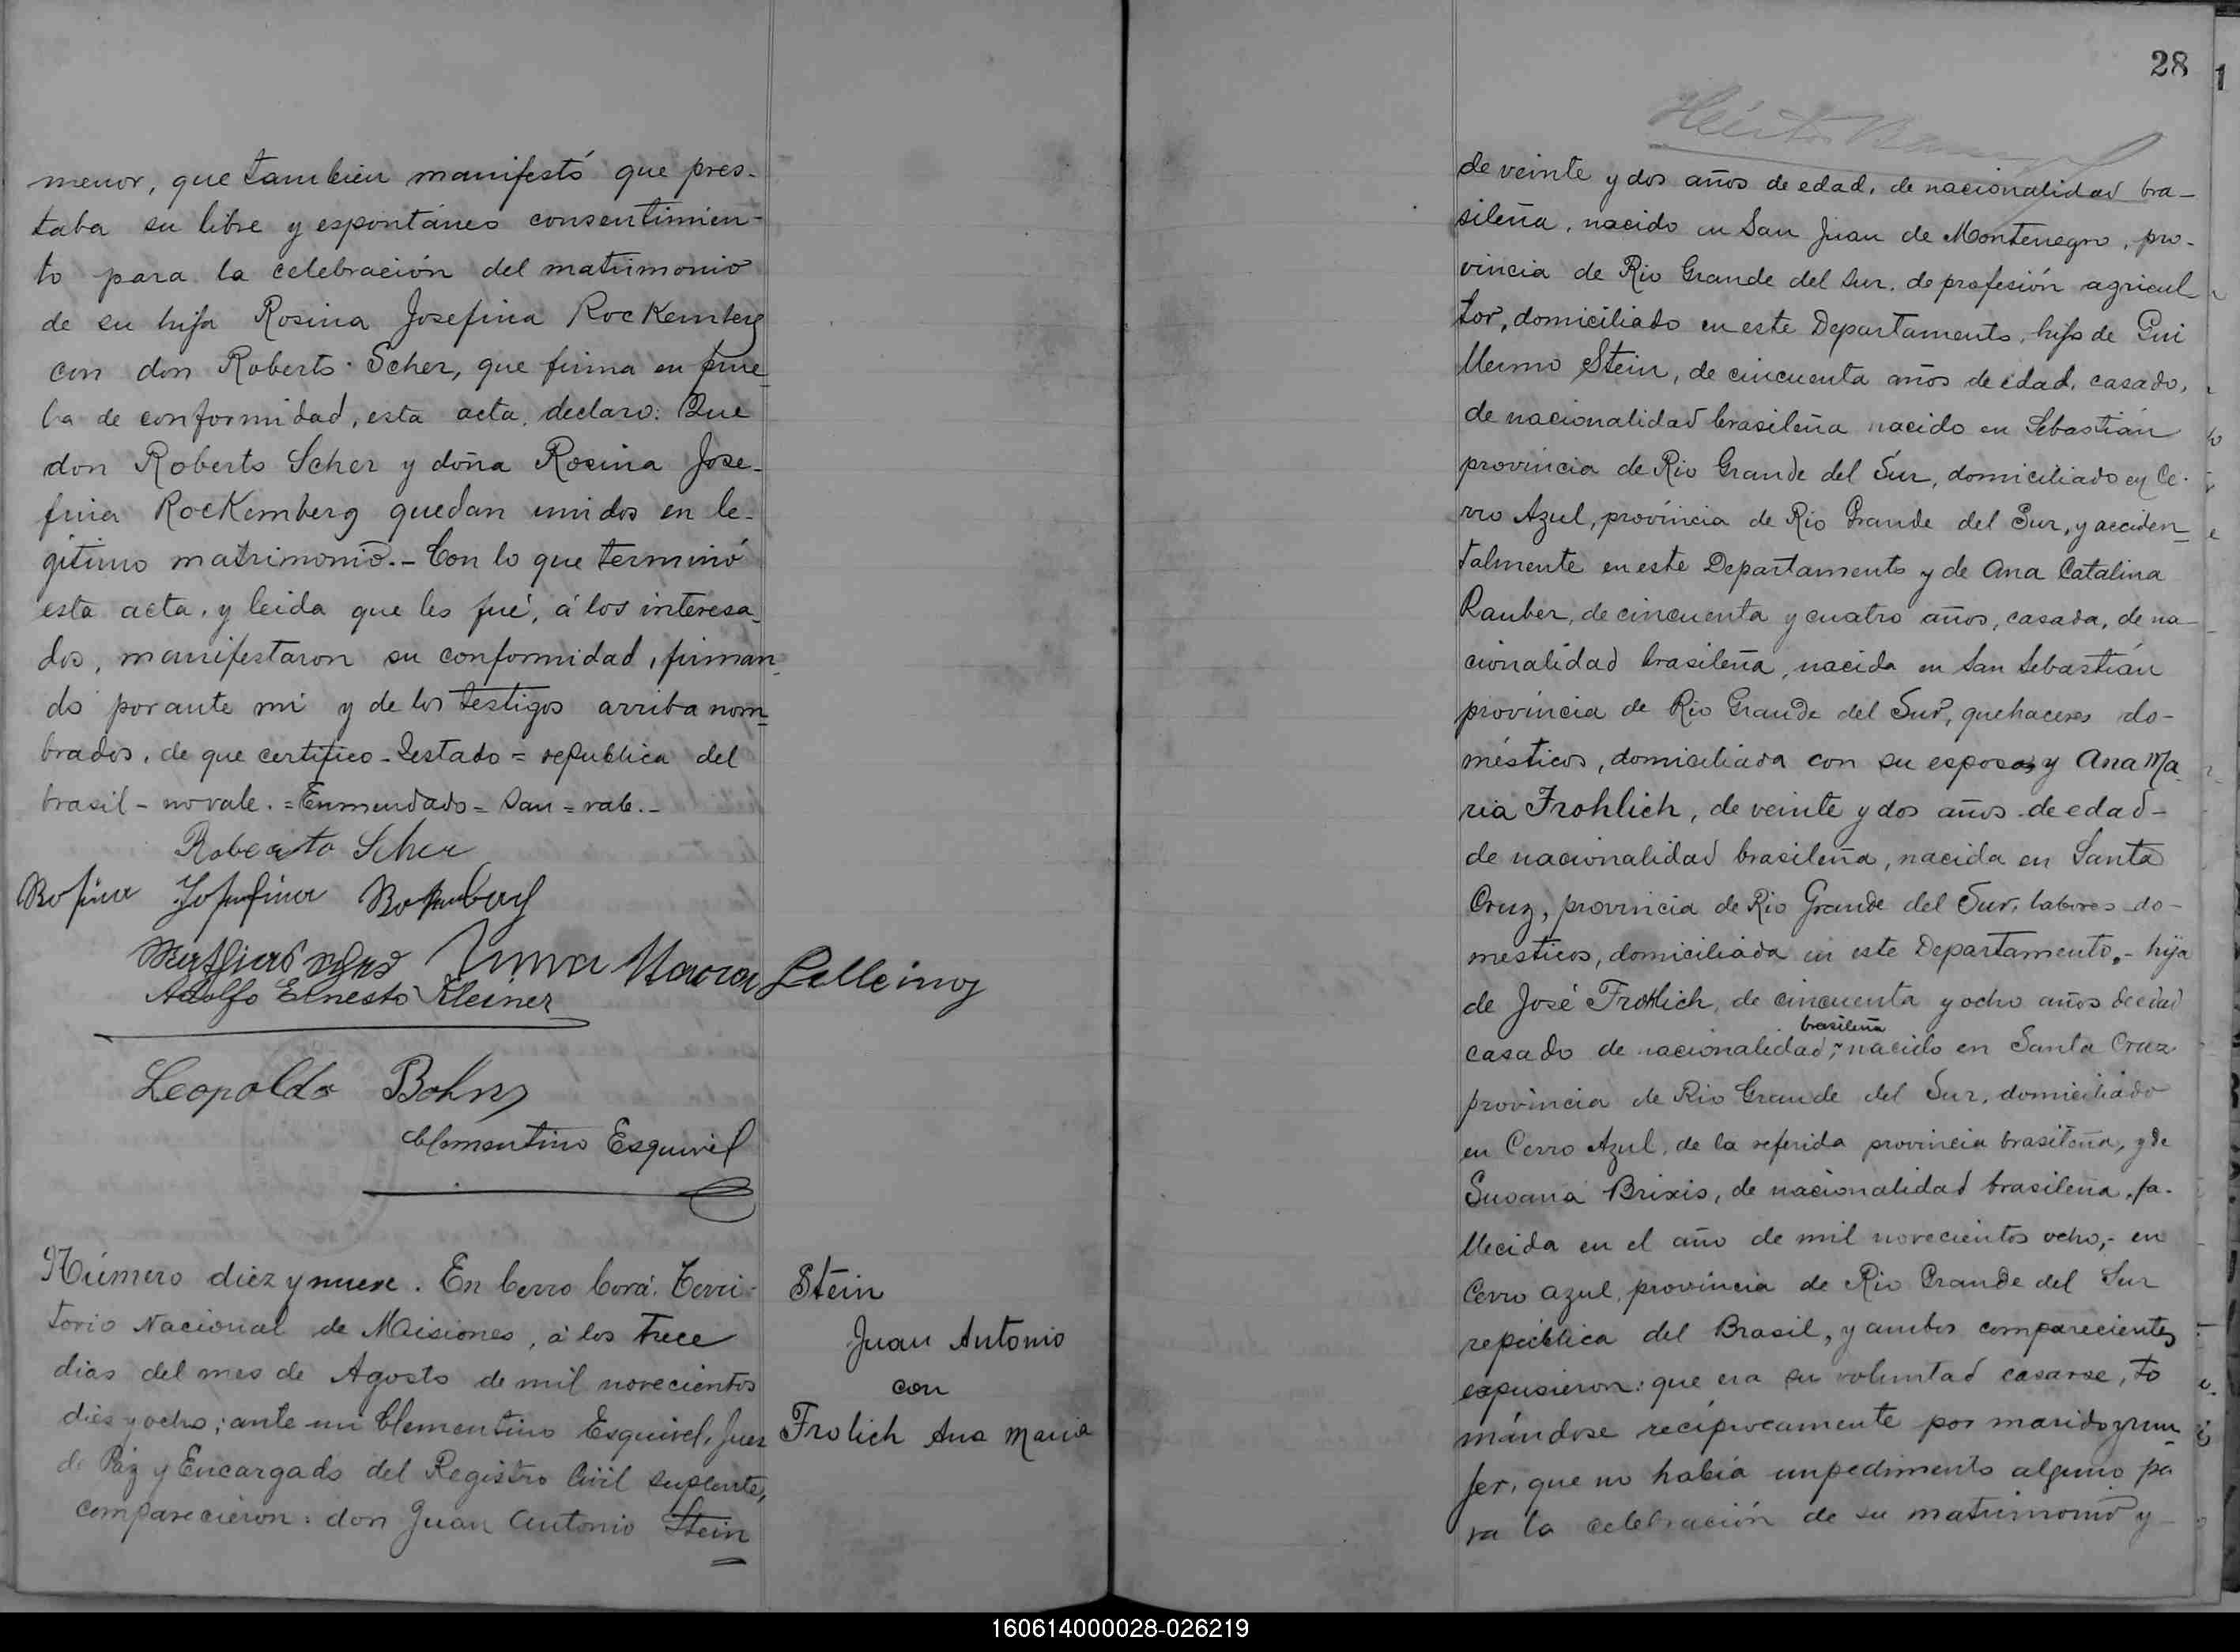 menor, que tambien manifestó que pres-
taba su libre y espontáneo consentimien-
to para la celebración del matrimonio
de su hija Rosina Josefina Rockemberg
con don Roberto Scher, que firma en prue_
ba de conformidad, esta acta, declaro: Que
don Roberto Scher y doña Rosina Jose-
fina Rockemberg quedan unidos en le-
gítimo matrimonio.- Con lo que terminó
esta acta, y leida que les fué, á los interesa_
dos, manifestaron su conformidad, firman_
do por ante mi y de los testigos arriba nom_
brados, de que certifico - Testado = republica del
brasil - no vale. = Enmendado = San = vale.-
Roberto Scher
Rosina Josefina
Adolfo Ernesto Kleiner
Leopoldo Bohn
Clementino Esquivel
Número diez y nueve. En Cerro Corá, Terri-
torio Nacional de Misiones, á los trece
dias del mes de Agosto de mil novecientos
dies y ocho; ante mi Clementino Esquivel, Juez
de Paz y Encargado del Registro Civil suplente,
comparecieron: don Juan Antonio Stein
Stein
Juan Antonio
con
Frolich Ana Maria
28
de veinte y dos años de edad, de nacionalidad bra-
sileña, nacido en San Juan de Montenegro, pro-
vincia de Rio Grande del Sur, de profesión agricul
tor, domiciliado en este Departamento, hijo de Gui
llermo Stein, de cincuenta años de edad, casado,
de nacionalidad brasileña nacido en Sebastián
provincia de Rio Grande del Sur, domiciliado en Ce-
rro Azul, provincia de Rio Grande del Sur, y acciden_
talmente en este Departamento y de Ana Catalina
Rauber, de cincuenta y cuatro años, casada, de na-
cionalidad brasileña, nacida en San Sebastián
provincia de Rio Grande del Sur, quehaceres do-
mésticos, domiciliada con su esposo y Ana Ma_
ria Frohlich, de veinte y dos años de edad-
de nacionalidad brasileña, nacida en Santa
Cruz, provincia de Rio Grande del Sur, labores do-
mesticos, domiciliada en este Departamento,- hija
de José Frohlich, de cincuenta y ocho años de edad
brasileña
casado de nacionalidad, nacido en Santa Cruz
provincia de Rio Grande del Sur, domiciliado
en Cerro Azul, de la referida provincia brasileña, y de
Susana Brixis, de nacionalidad brasileña, fa-
llecida en el año de mil novecientos ocho,- en
Cerro azul, provincia de Rio Grande del Sur
república del Brasil, y ambos comparecientes
expusieron: que era su voluntad casarse, to
mándose recíprocamente por marido y mu_
jer, que no había impedimento alguno pa
ra la celebración de su matrimonio y
160614000028-026219